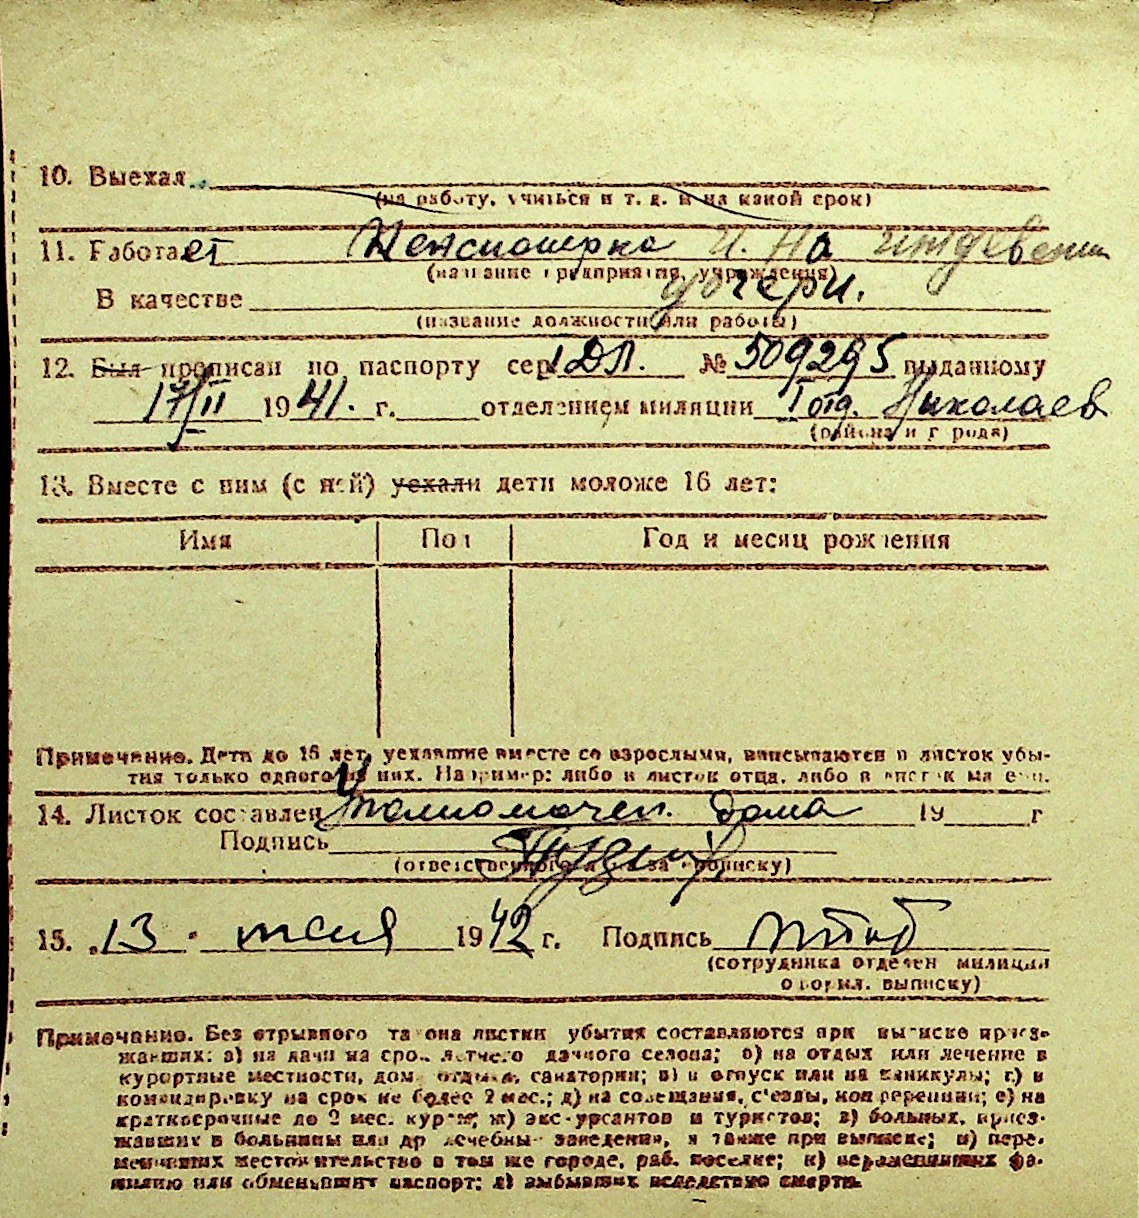 10. Выехал
(на работу, учиться и т. д. и на какой срок)
11. Работает Пенсионерка и на иждевении
(название предприятия, учреждения)
дочери.
В качестве
(название должности или работы)
12. Был прописан по паспорту сер. 1ДЛ. № 509295 выданному
17/II 1941. г. отделением милиции I отд. Николаев
(района и города)
13. Вместе с ним (с ней) уехали дети моложе 16 лет:
Имя Пол Год и месяц рождения
Примечание. Дети до 16 лет, уехавшие вместе со взрослыми, вписываются в листок убы-
тия только одного из них. Например: либо в листок отца, либо в листок матери.
14. Листок составлен Уполномочен. дома 19 г
Подпись
(ответственного лица за прописку)
15. 13 июля 1942 г. Подпись
(сотрудника отделен милиции
оформл. выписку)
Примечание. Без отрывного талона листки убытия составляются при выписке приез-
жавших: а) на дачи на срок летнего дачного сезона; б) на отдых или лечение в
курортные местности, дома отдыха, санатории; в) в отпуск или на каникулы; г) в
командировку на срок не более 2 мес.; д) на совещания, с'езды, конференции; е) на
краткосрочные до 2 мес. курсы; ж) экскурсантов и туристов; з) больных, приез-
жавших в больницы или др лечебные заведения, а также при выписке; и) пере-
менивших местожительство в том же городе, раб. поселке; к) переменивших фа-
милию или обменявших паспорт; л) выбывших вследствие смерти.